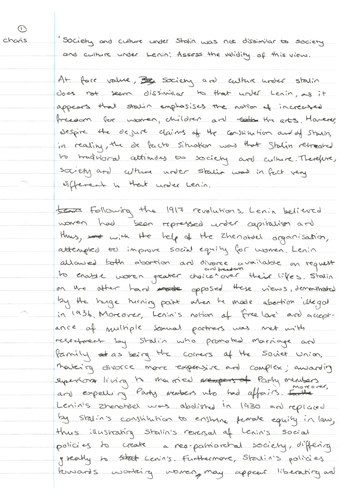 ①
charis
'Society and culture under Stalin was not dissimilar to society
and culture under Lenin'; Assess the validity of this view.
At face value, society and culture under Stalin
does not seem dissimilar to that under Lenin, as it
appears that Stalin emphasises the notion of increased
freedom for women, children and the arts. However,
despite the de jure claims of the constitution and of Stalin,
in reality, the de facto situation was that Stalin retreated
to traditional attitudes to society and culture. Therefore,
society and culture under Stalin was in fact very
different to that under Lenin.
Following the 1917 revolutions, Lenin believed
women had been repressed under capitalism and
thus, with the help of the Zhenotdel organisation,
attempted to improve social equity for women. Lenin
allowed both abortion and divorce available on request
to enable women greater choice and freedom over their lifes. Stalin
on the other hand opposed these views, demonstrated
by the huge turning point when he made abortion illegal
in 1936. Moreover, Lenin's notion of 'free love' and accept-
ance of multiple sexual partners was met with
resentment by Stalin who promoted marriage and
family as being the corners of the Soviet Union,
making divorce more expensive and complex; awarding
living to married Party members
and expelling Party members who had affairs. Moreover,
Lenin's Zhenotdel was abolished in 1930 and replaced
by Stalin's constitution to ensure female equity in law,
thus illustrating Stalin's reversal of Lenin's social
policies to create a neo-patriarchal society, differing
greatly to Lenin's. Furthermore, Stalin's policies
towards working women, may appear liberating and